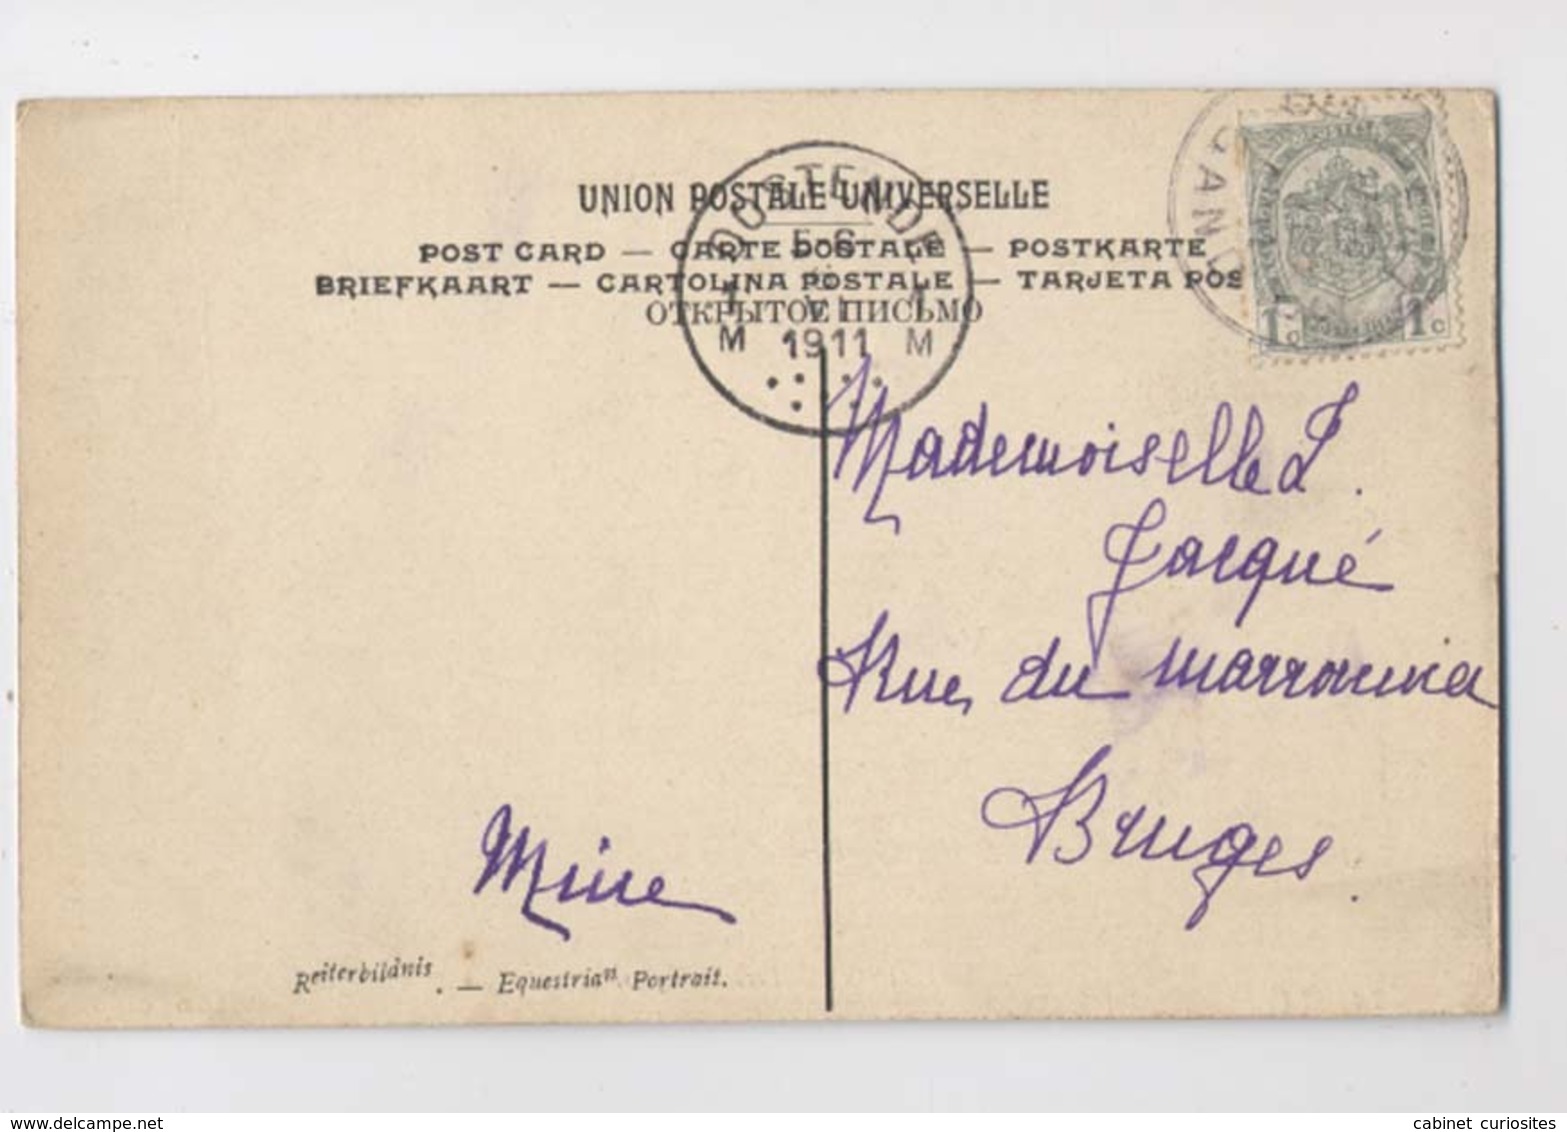 UNION POSTALE UNIVERSELLE
POST CARD — CARTE POSTALE — POSTKARTE
BRIEFKAART — CARTOLINA POSTALE — TARJETA POS
ОТКРЫТОЕ ПИСЬМО
OOSTENDE
5-6
1 VI 1
M 1911 M
GAND
1c 1c
Mademoiselle J.
Jacqué
Rue du
Bruges.
Mine
Reiterbildnis. — Equestrian Portrait.
cabinet curiosites